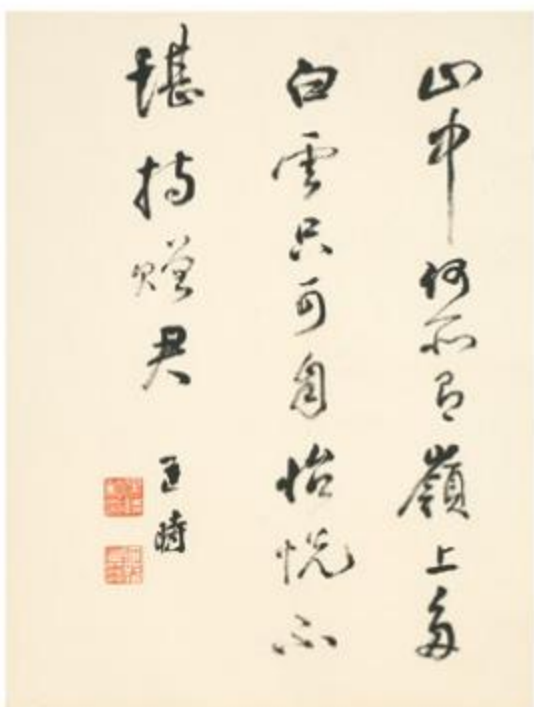 山中何所有嶺上多
白雲只可自怡悦不
堪持贈君
匡時